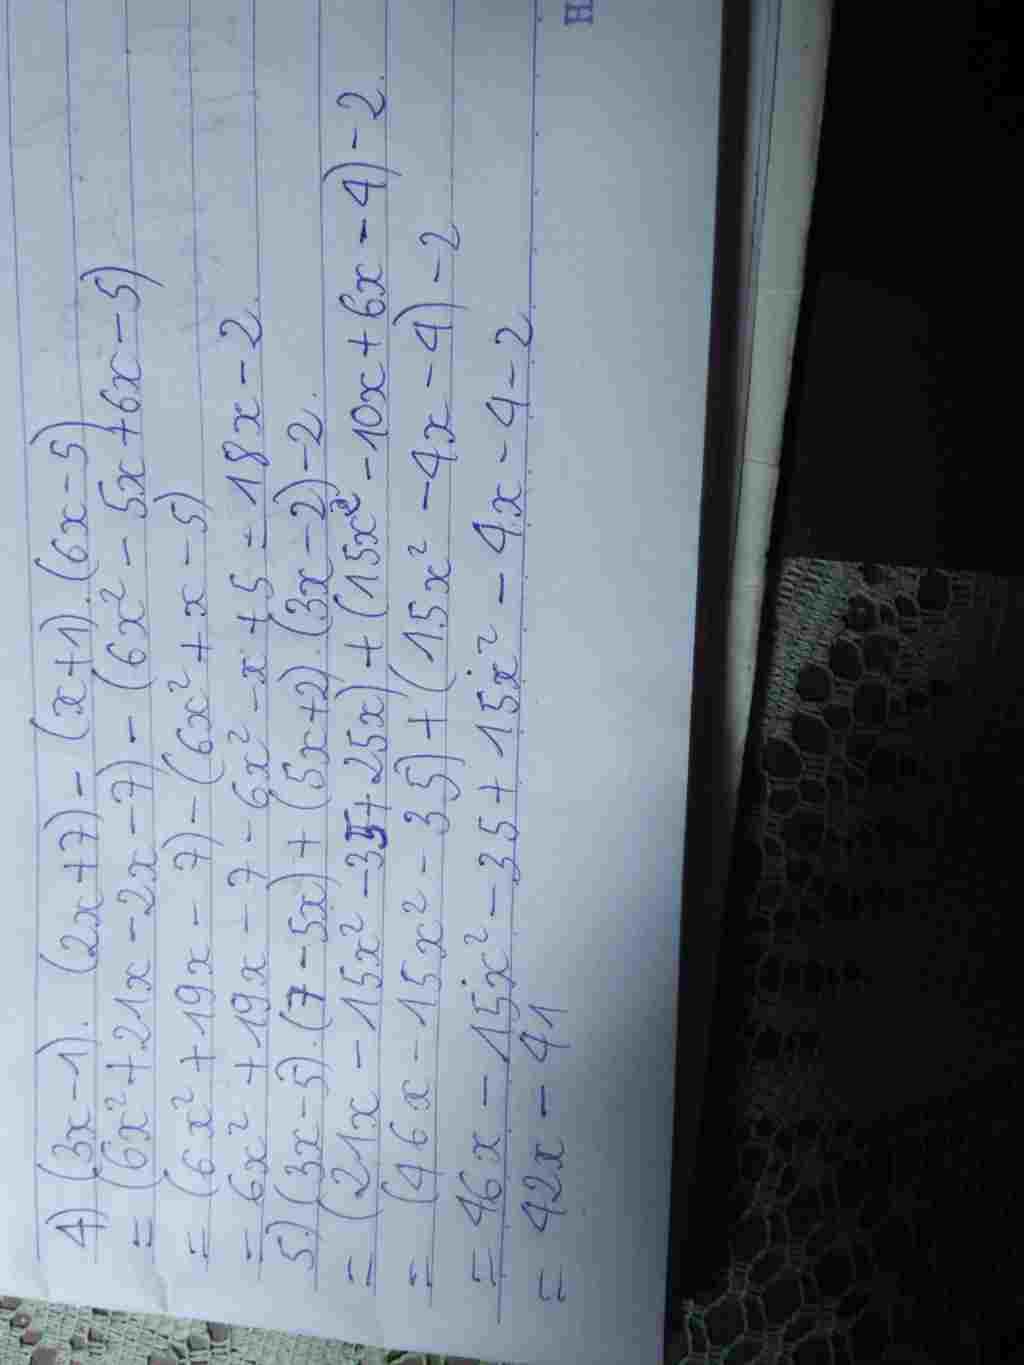 4) (3x-1). (2x+7) - (x+1).(6x-5)
= (6x² + 21x - 2x - 7) - (6x² - 5x + 6x - 5)
= (6x² + 19x - 7) - (6x² + x - 5)
= 6x² + 19x - 7 - 6x² - x + 5 = 18x - 2.
5) (3x-5).(7-5x) + (5x+2).(3x-2) - 2.
= (21x - 15x² - 35 + 25x) + (15x² - 10x + 6x - 4) - 2.
= (46x - 15x² - 35) + (15x² - 4x - 4) - 2
= 46x - 15x² - 35 + 15x² - 4x - 4 - 2
= 42x - 41
H